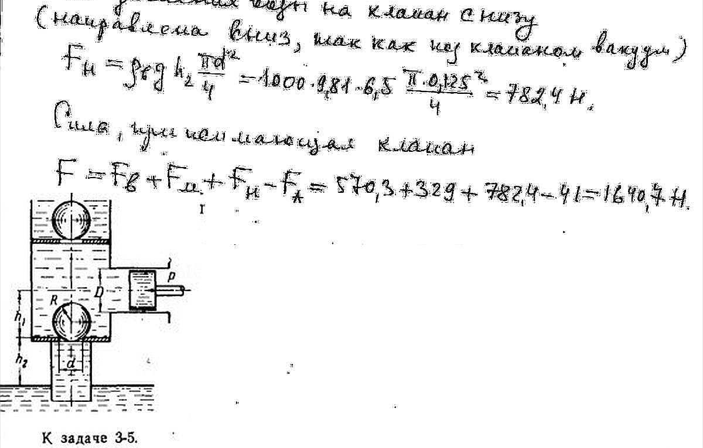 на клапан снизу
(направлена вниз, так как под клапаном вакуум)
Fн = ρв g h₂ πd²/4 = 1000·9,81·6,5 π·0,125²/4 = 782,4 Н.
Сила, прижимающая клапан
F = Fв + Fм + Fн − FА = 570,3+329+782,4−41=1640,7 Н.
P
D
R
h₁
d
h₂
К задаче 3-5.